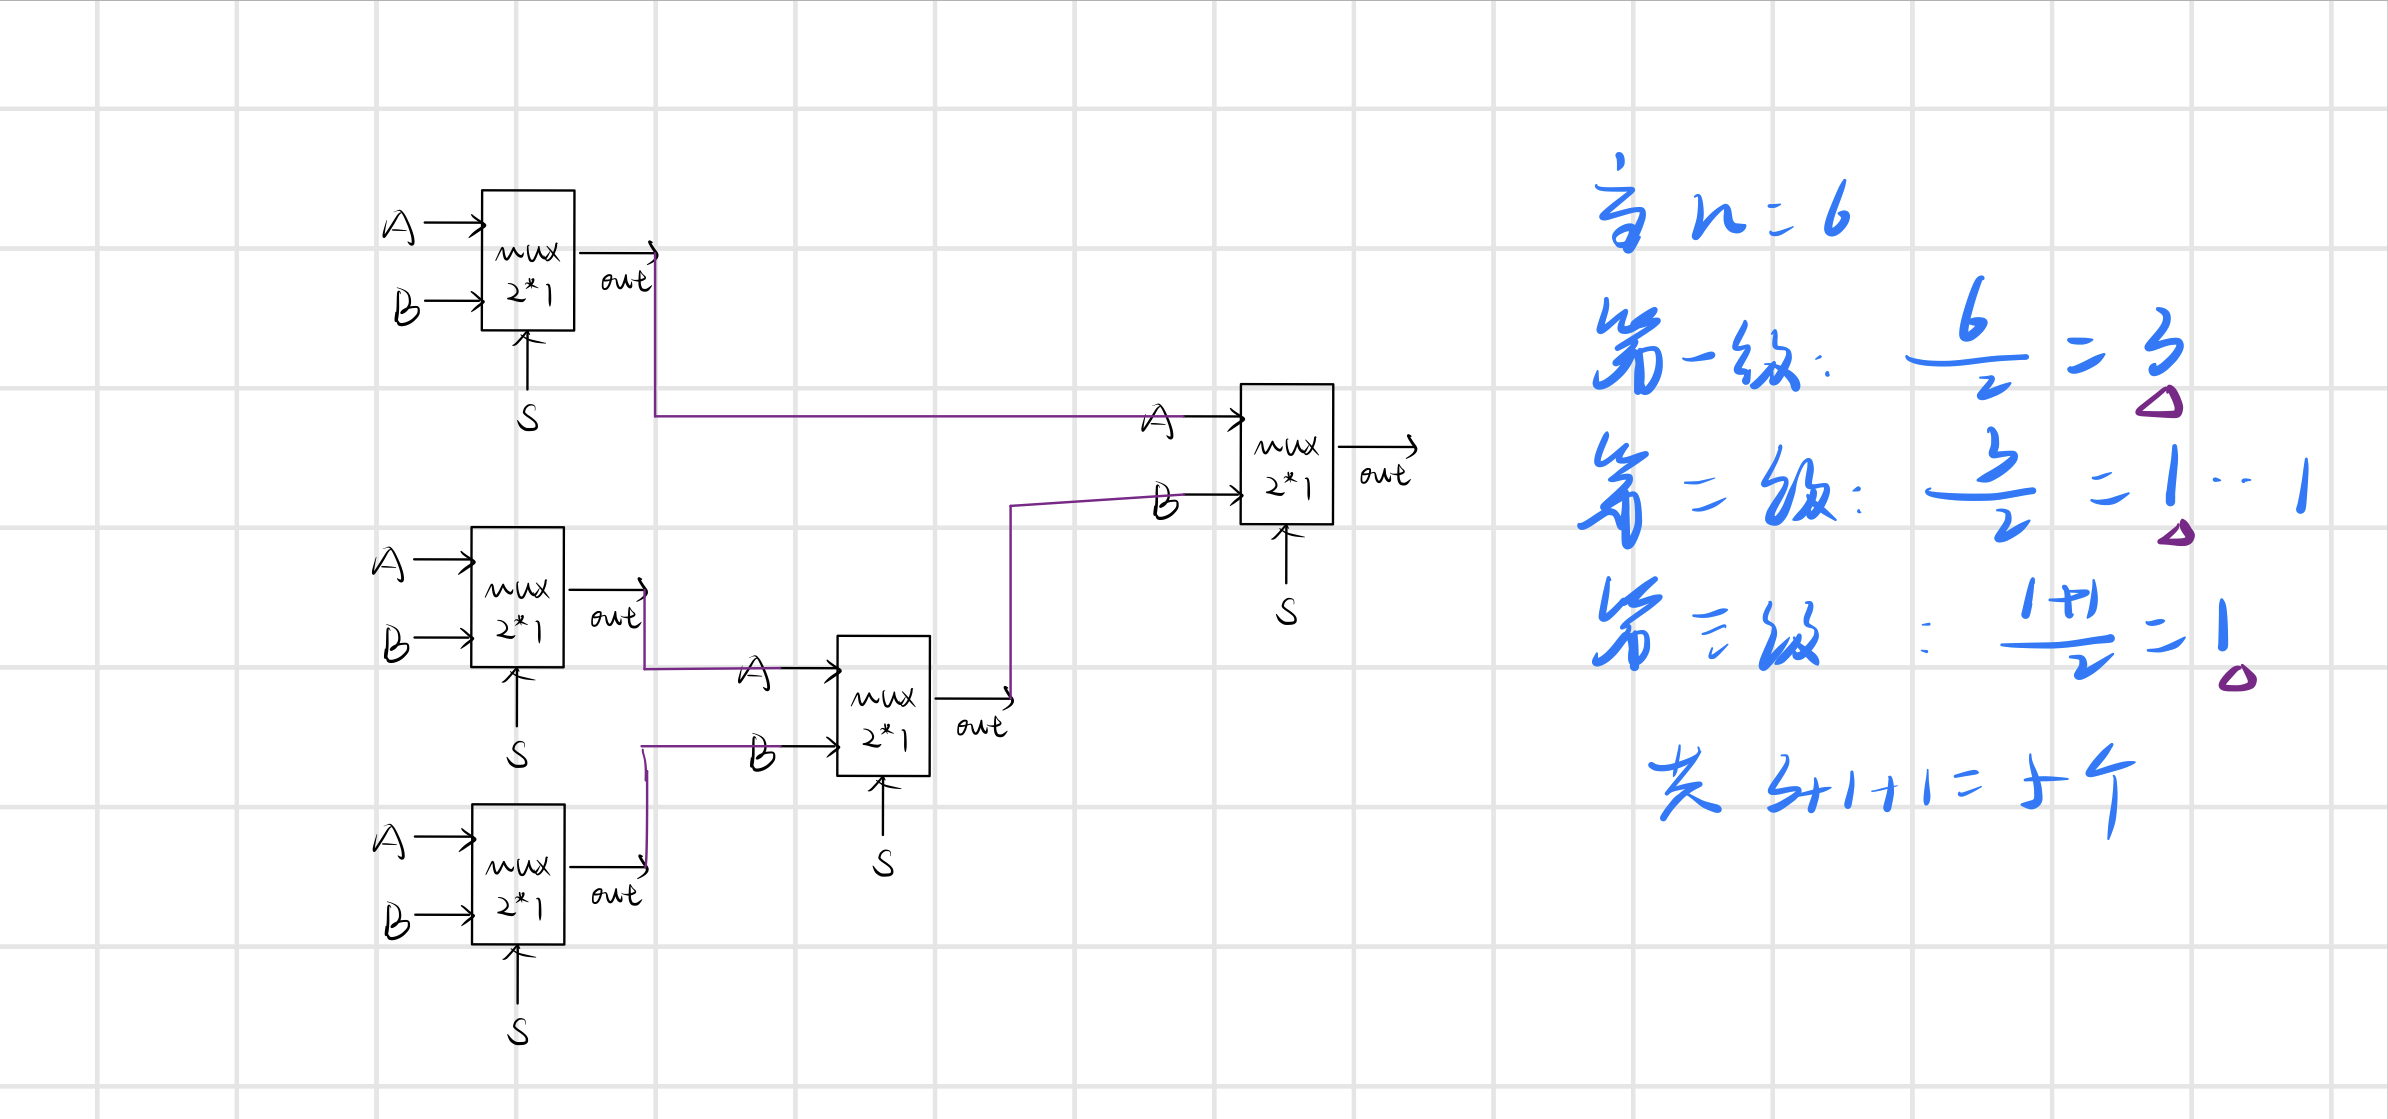 A
B
mux
2*1
out
S
A
B
mux
2*1
out
S
A
B
mux
2*1
out
S
A
B
mux
2*1
out
S
A
B
mux
2*1
out
S
当 n = 6
第一级: 6/2 = 3
第二级: 3/2 = 1 ... 1
第三级: 1+1/2 = 1
共 3+1+1 = 5个